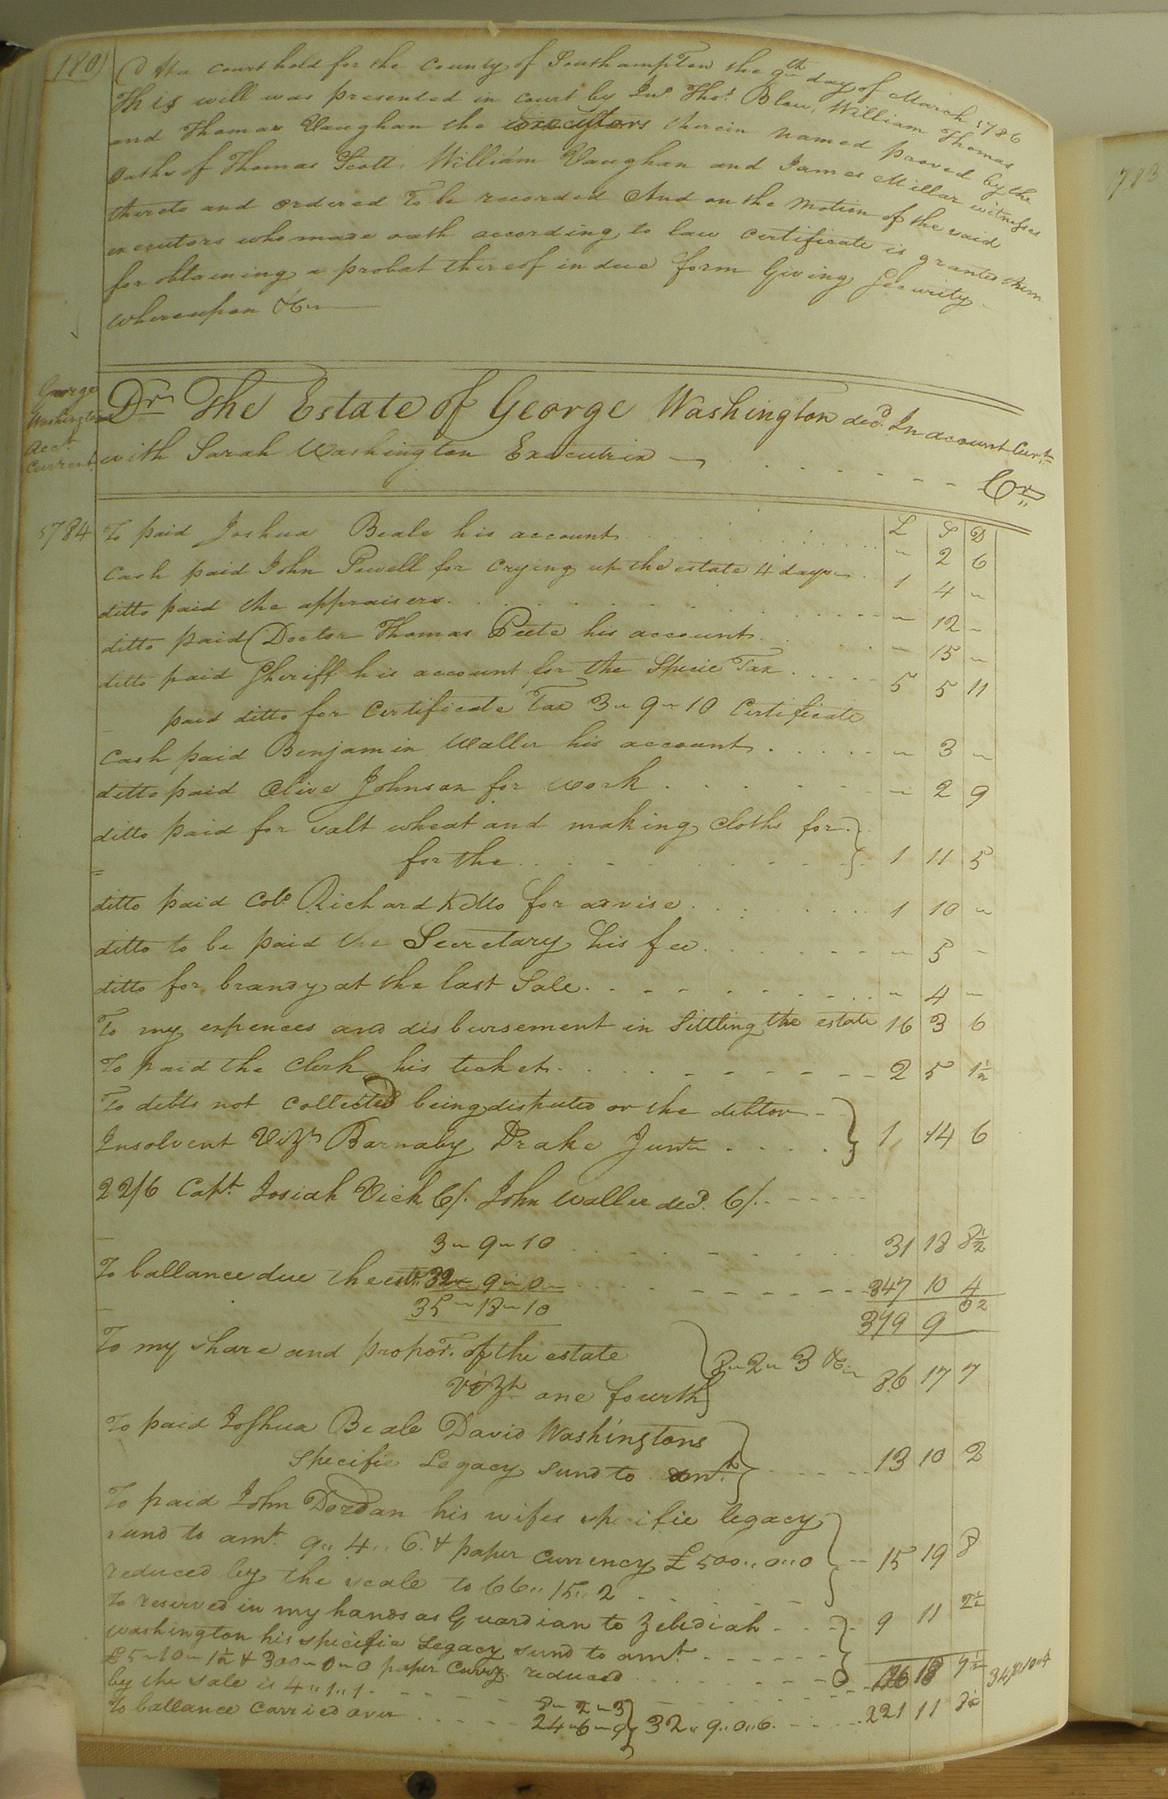 180)
At a court held for the County of Southampton the 9th day of March 1786
This will was presented in court by Jno Thos. Blow, William Thomas
and Thomas Vaughan the executors therein named proved by the
oaths of Thomas Scott, William Vaughan and James Millar witnesses
thereto and ordered to be recorded And on the motion of the said
executors who made oath according to law certificate is granted them
for obtaining a probat thereof in due form Giving Security
whereupon &c
George Washington Acct. Current
Dr The Estate of George Washington decd. In account Curt
with Sarah Washington Executrix Cr
L S D
1784 To paid Joshua Beale his account - 2 6
Cash paid John Powell for crying up the estate 4 days 1 4 -
ditto paid the appraisers - 12 -
ditto paid Doctor Thomas Peete his account - 15 -
ditto paid Sheriff his account for the Specie Tax 5 5 11
paid ditto for Certificate Tax 3 - 9 - 10 Certificate
Cash paid Benjamin Waller his account - 3 -
ditto paid Olive Johnson for work - 2 9
ditto paid for salt wheat and making cloths for
for the 1 11 5
ditto paid Colo. Richard Kello for advise 1 10 -
ditto to be paid the Secretary his fee - 5 -
ditto for brandy at the last Sale - 4 -
To my expences and disbursement in Sittling the estate 16 3 6
To paid the Clerk his tickets 2 5 1½
To debts not collected being disputed or the debtor
Insolvent Vizt Barnaby Drake Junr 1 14 6
22/6 Capt. Josiah Vick 6/. John Waller decd. 6/.
3 - 9 - 10 31 18 8½
To ballance due the est. 32 - 9 - 0 - 347 10 4
35 - 18 - 10 379 9
To my share and propor. of the estate
Vizt one fourth 8 - 2 - 3 &c 86 17 7
To paid Joshua Beale David Washingtons
Specific Legacy sund to amt. 13 10 2
To paid John Dordan his wifes specific legacy
sund to amt. 9,, 4,, 6. & paper currency £500,,0,,0 15 19 8
reduced by the scale to 66,, 15,, 2
To reserved in my hands as Guardian to Zebidiah 9 11 2½
Washington his specific Legacy sund to amt.
£5 - 10 - 1½ & 300 - 0 - 0 paper Curry. reduced
by the sale is 4,, 1,, 1. 126 18 9½ 348,,10,,4
To ballance carried over 8 - 2 - 3
24 - 6 - 9 32,, 9,, 0,, 6. 221 11